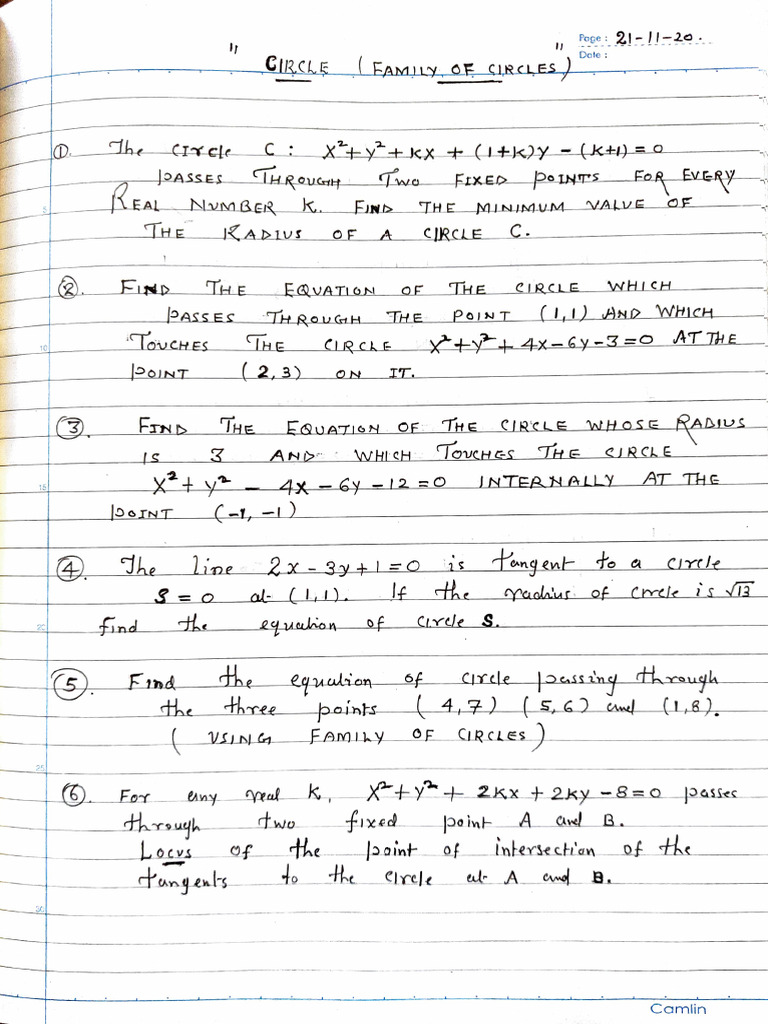 Page: 21-11-20.
Date:
" CIRCLE (FAMILY OF CIRCLES) "
①. The circle C: x²+y²+kx + (1+k)y – (k+1) = 0
PASSES THROUGH TWO FIXED POINTS FOR EVERY
5
REAL NUMBER K. FIND THE MINIMUM VALUE OF
THE RADIUS OF A CIRCLE C.
②. FIND THE EQUATION OF THE CIRCLE WHICH
PASSES THROUGH THE POINT (1,1) AND WHICH
10
TOUCHES THE CIRCLE x²+y²+4x–6y–3=0 AT THE
POINT (2,3) ON IT.
③. FIND THE EQUATION OF THE CIRCLE WHOSE RADIUS
IS 3 AND WHICH TOUCHES THE CIRCLE
15
x²+y² – 4x –6y –12=0 INTERNALLY AT THE
POINT (-1, -1)
④. The line 2x–3y+1=0 is tangent to a circle
S=0 at (1,1). If the radius of circle is √13
20
find the equation of circle S.
⑤. Find the equation of circle passing through
the three points (4,7) (5,6) and (1,8).
(USING FAMILY OF CIRCLES)
25
⑥. For any real k, x²+y²+ 2kx + 2ky –8=0 passes
through two fixed point A and B.
Locus of the point of intersection of the
tangents to the circle at A and B.
30
Camlin